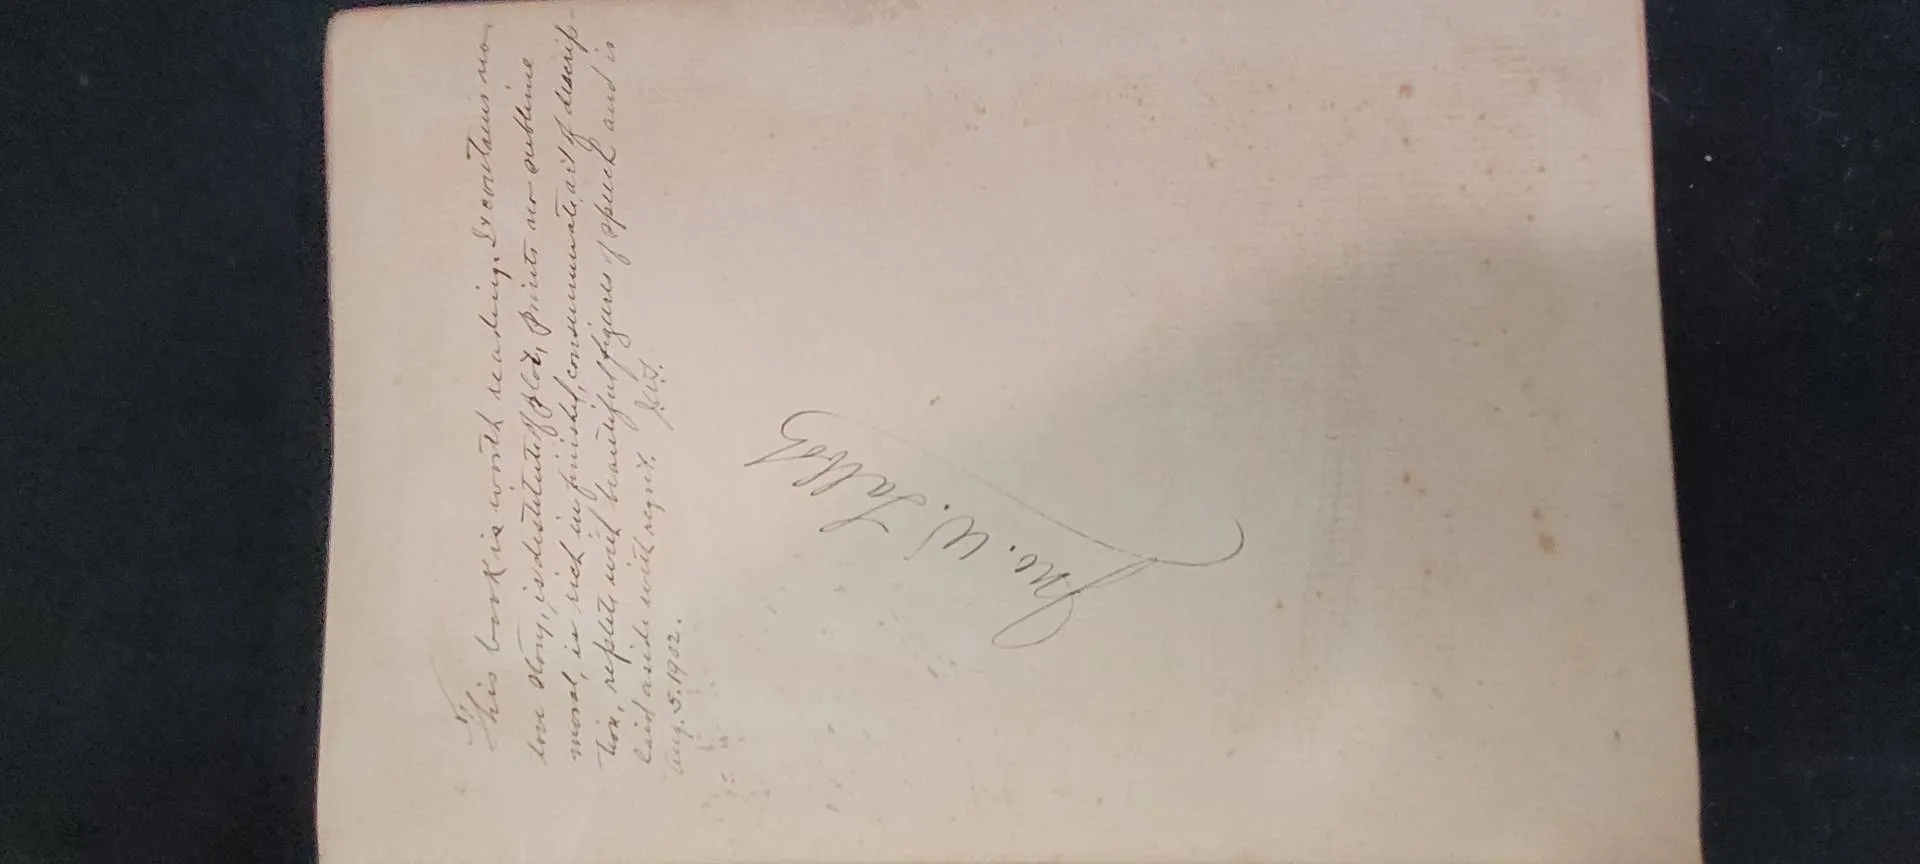 This book is worth reading. It contains no
love story, is destitute of plot, points no sublime
moral, is rich in finished, consummate, art of descrip-
tion, replete with beautiful figures of speech and is
laid aside with regret. J.W.T.
Aug. 5. 1902.
Jno. W. Talbot